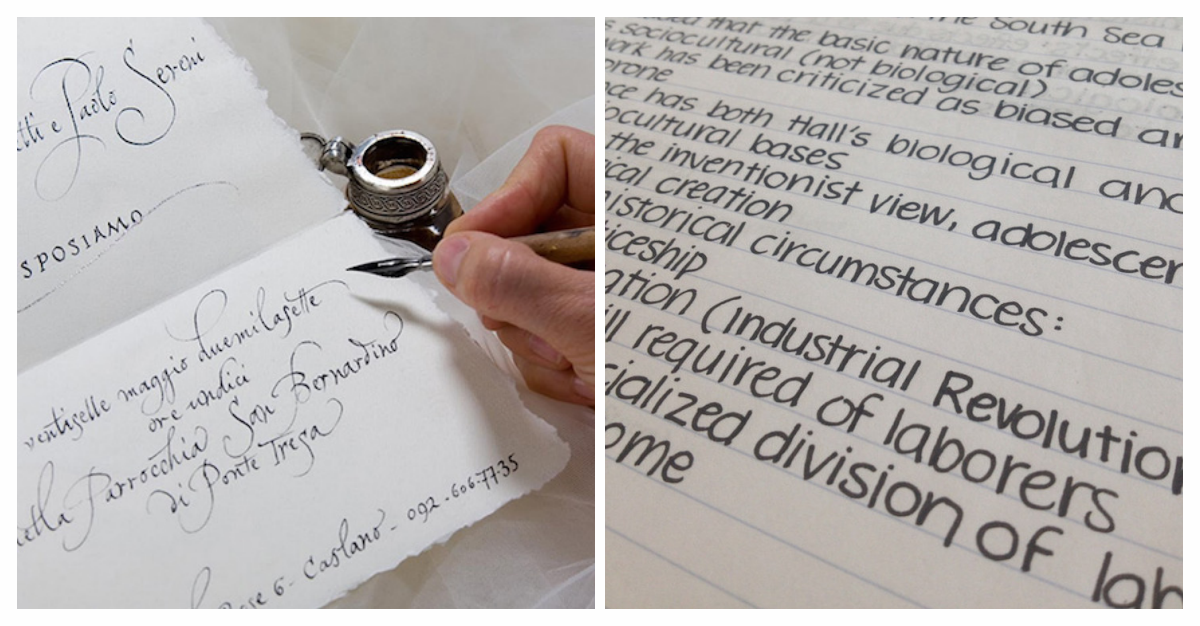 e Paolo Sereni
SPOSIAMO
ventiselle maggio duemilasette
ore undici
Parrocchia San Bernardino
di Ponte Tresa
6 - Caslano - 092 - 606.77.35
the South Sea
that the basic nature of adoles
sociocultural (not biological)
has been criticized as biased an
prone
has both Hall's biological and
ocultural bases
the inventionist view, adolescen
ical creation
historical circumstances:
iceship
ation (Industrial Revolution
ll required of laborers
cialized division of lab
ome